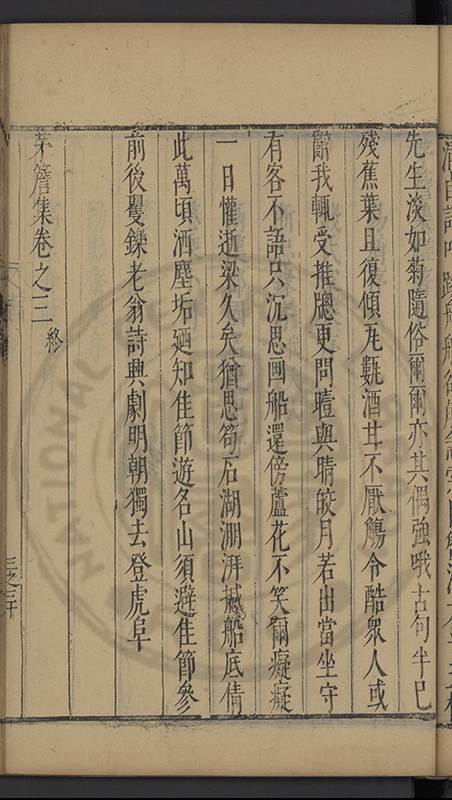 先生淡如菊隨俗爾爾亦其偶強哦古句半已
殘蕉葉且復傾瓦甒酒甘不厭觴令酷衆人或
醉我輒受推牕更問曀與晴皎月若出當坐守
有客不語只沉思画船還傍蘆花不笑爾癡癡
一日懽逝梁久矣猶思笱石湖淜湃撼船底倩
此萬頃酒塵垢廼知佳節遊名山須避佳節參
前後矍鑠老翁詩興劇明朝獨去登虎阜
茅簷集卷之三 終
三之三十